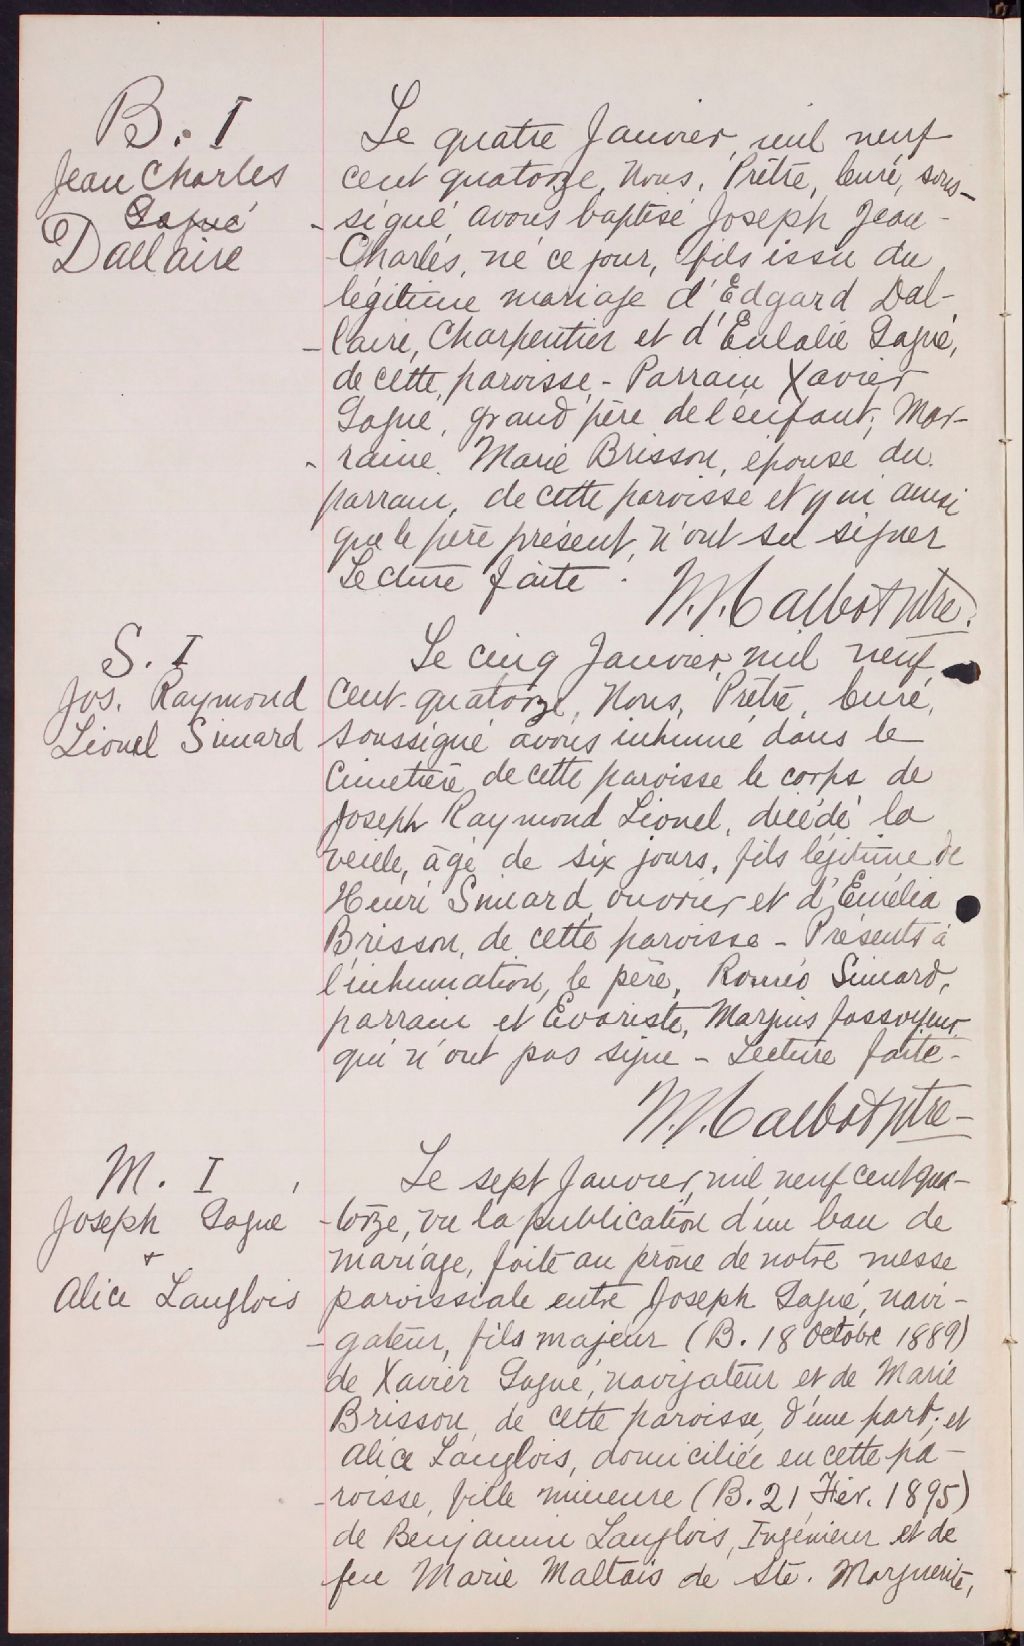 B. I
Jean Charles
Gagné
Dallaire
Le quatre Janvier, mil neuf
cent quatorze, Nous, Prêtre, Curé, sous-
- signé avons baptisé Joseph Jean-
- Charles, né ce jour, fils issu du
légitime mariage d'Edgard Dal-
- laire, Charpentier et d'Eulalie Gagné,
de cette paroisse - Parrain Xavier
Gagné, grand père de l'enfant; Mar-
- raine Marie Brisson, épouse du
parrain, de cette paroisse et qui ainsi
que le père présent, n'ont su signer
Lecture faite.
Talbot ptre.
S. I
Jos. Raymond
Lionel Simard
Le cinq Janvier, mil neuf
cent-quatorze, Nous, Prêtre, Curé,
soussigné avons inhumé dans le
Cimetière de cette paroisse le corps de
Joseph Raymond Lionel, décédé la
veille, âgé de six jours, fils légitime de
Henri Simard, ouvrier et d'Emélia
Brisson, de cette paroisse - Présents à
l'inhumation, le père, Roméo Simard,
parrain et Evariste, Marquis fossoyeur
qui n'ont pas signé - Lecture faite -
Talbot ptre -
M. I
Joseph Gagné
+
Alice Langlois
Le sept Janvier, mil neuf cent qua-
- torze, vu la publication d'un ban de
mariage, faite au prône de notre messe
paroissiale entre Joseph Gagné, navi-
- gateur, fils majeur (B. 18 Octobre 1889)
de Xavier Gagné, navigateur et de Marie
Brisson, de cette paroisse, d'une part; et
Alice Langlois, domiciliée en cette pa-
- roisse, fille mineure (B. 21 Fév. 1895)
de Benjamin Langlois, Ingénieur et de
feu Marie Maltais de Ste. Marguerite,